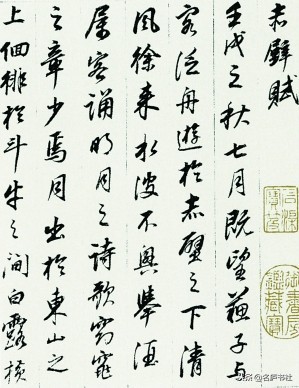 赤壁賦
壬戌之秋七月既望蘇子与
客泛舟遊於赤壁之下清
風徐来水波不興舉酒
属客誦明月之诗歌窈窕
之章少焉月出於東山之
上徊徘於斗牛之間白露横
石渠寶笈
御書房鑑藏寶
头条@名庐书社